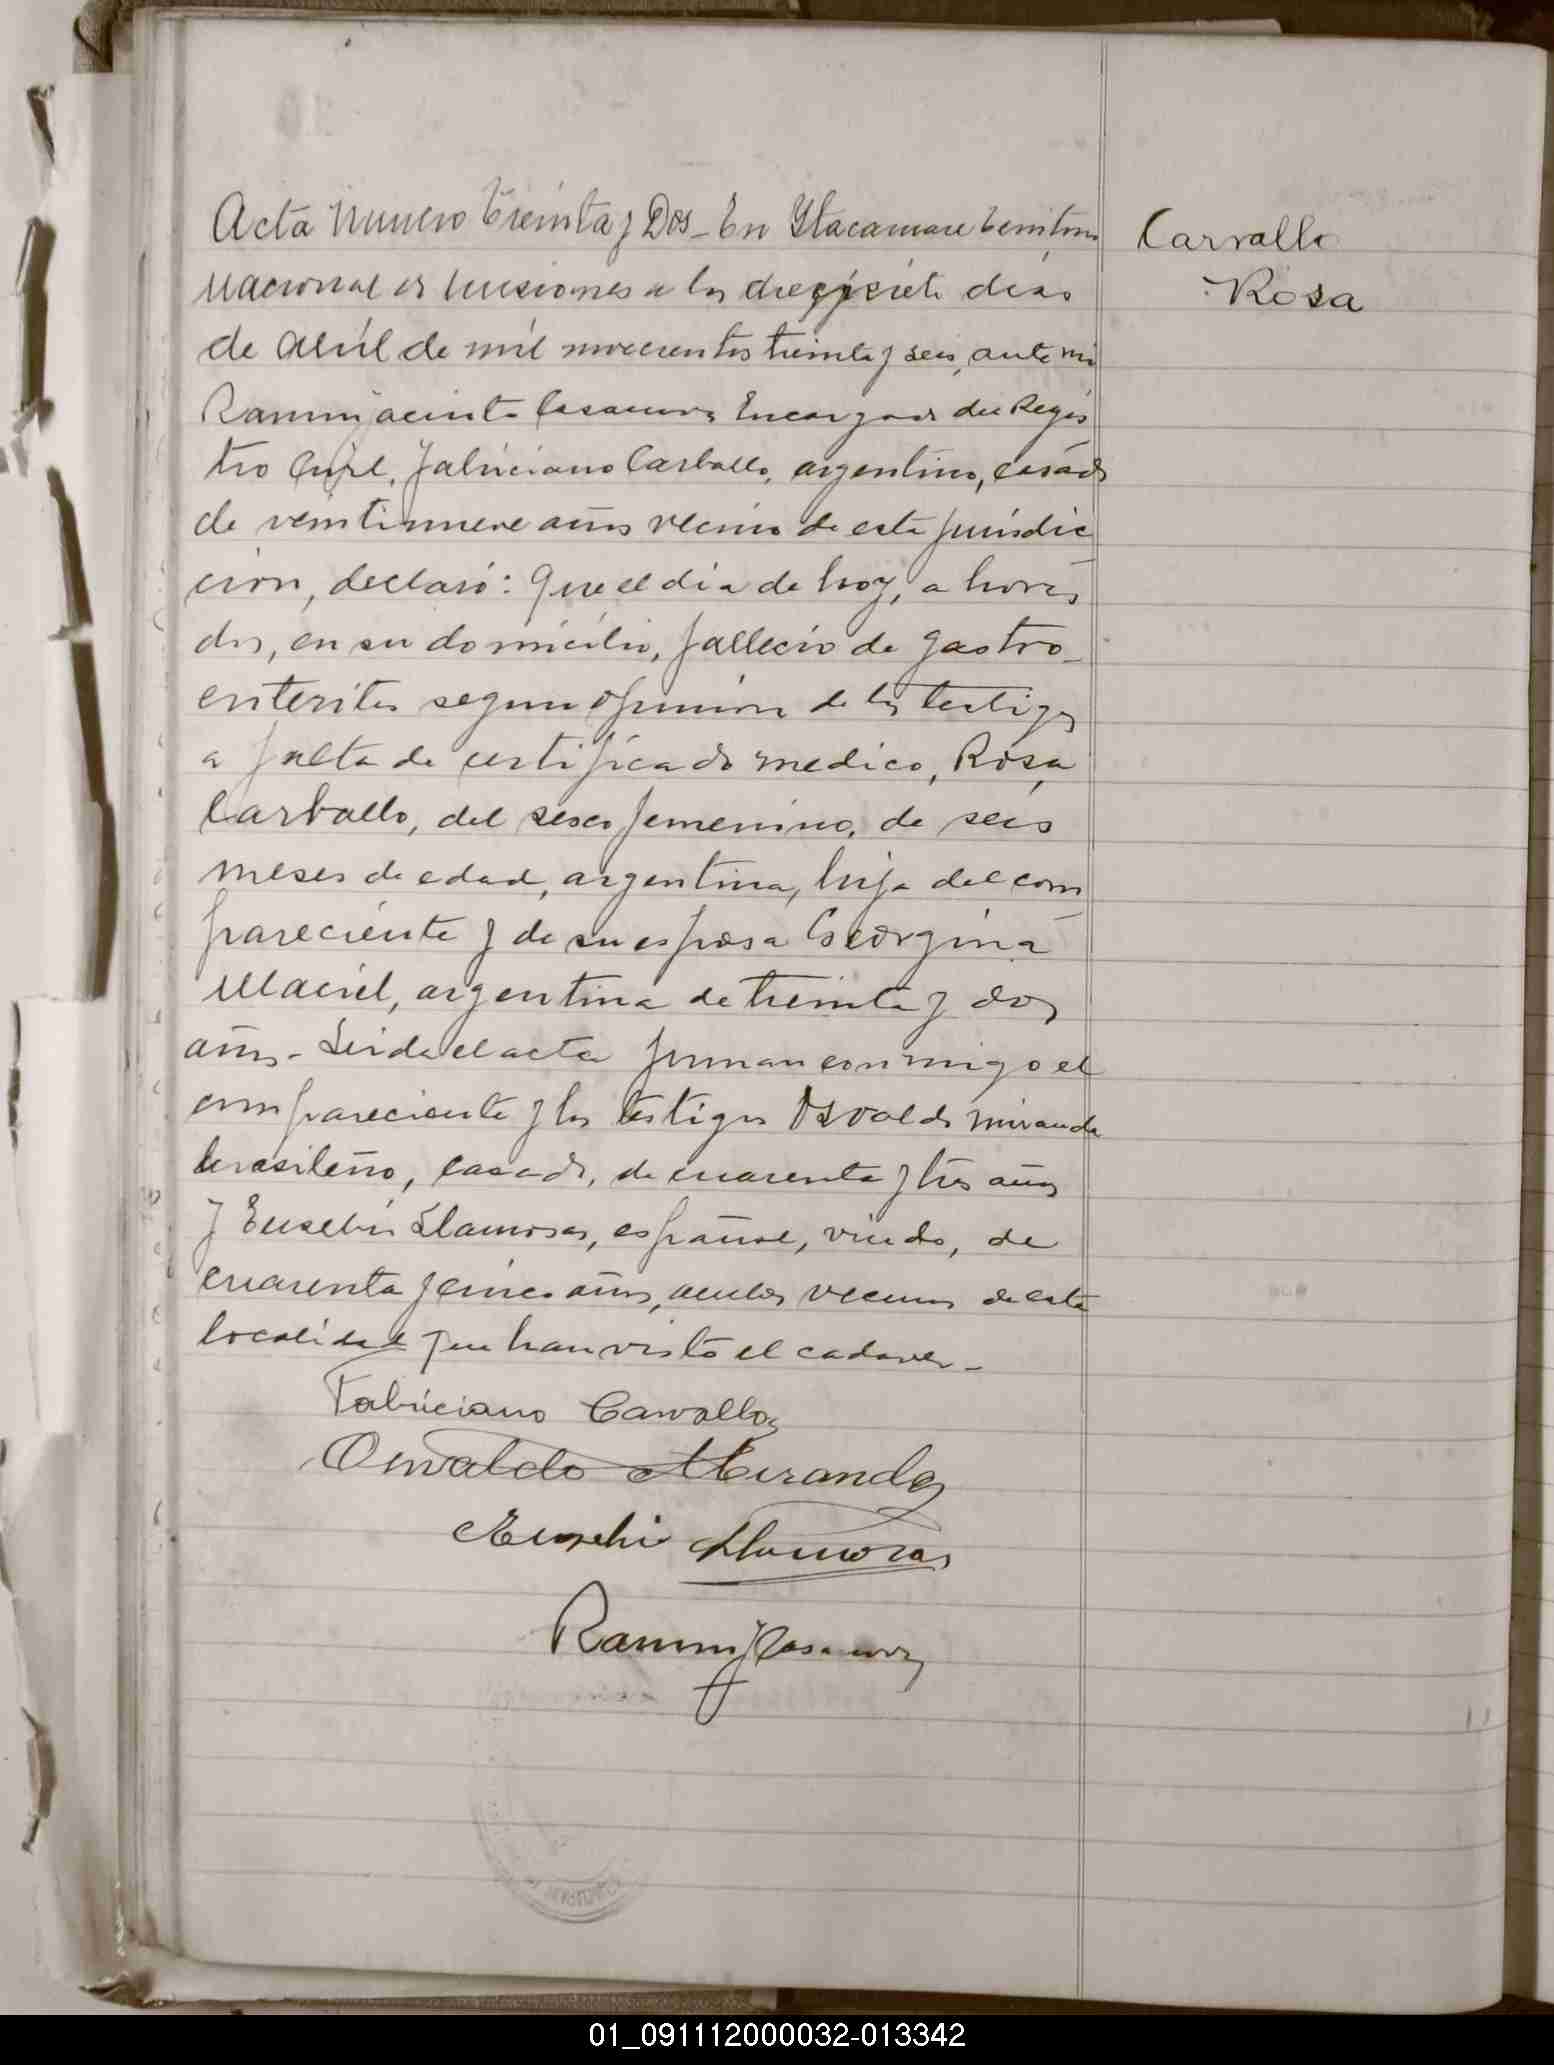 Acta Numero Treinta y Dos - En Itacaruare Territorio
Nacional de Misiones a los diecisiete dias
de Abril de mil novecientos treinta y seis, ante mi
Ramon Jacinto Casanova Encargado del Regis
tro Civil, Fabriciano Carballo, argentino, casado
de veintinueve años vecino de esta jurisdic
cion, declaró: Que el dia de hoy, a horas
dos, en su domicilio, fallecio de gastro-
enteritis segun opinion de los testigos
a falta de certificado medico, Rosa
Carballo, del sexo femenino, de seis
meses de edad, argentina, hija del com
pareciente y de su esposa Georgina
Maciel, argentina de treinta y dos
años - Leida el acta firman conmigo el
compareciente y los testigos Osvaldo Miranda
brasileño, casado, de cuarenta y tres años
y Eusebio Llamosas, español, viudo, de
cuarenta y cinco años, ambos vecinos de esta
localidad que han visto el cadaver -
Fabriciano Carvallo
Osvaldo Miranda
Eusebio Llamosas
Ramon J Casanova
Carvallo
Rosa
01_091112000032-013342